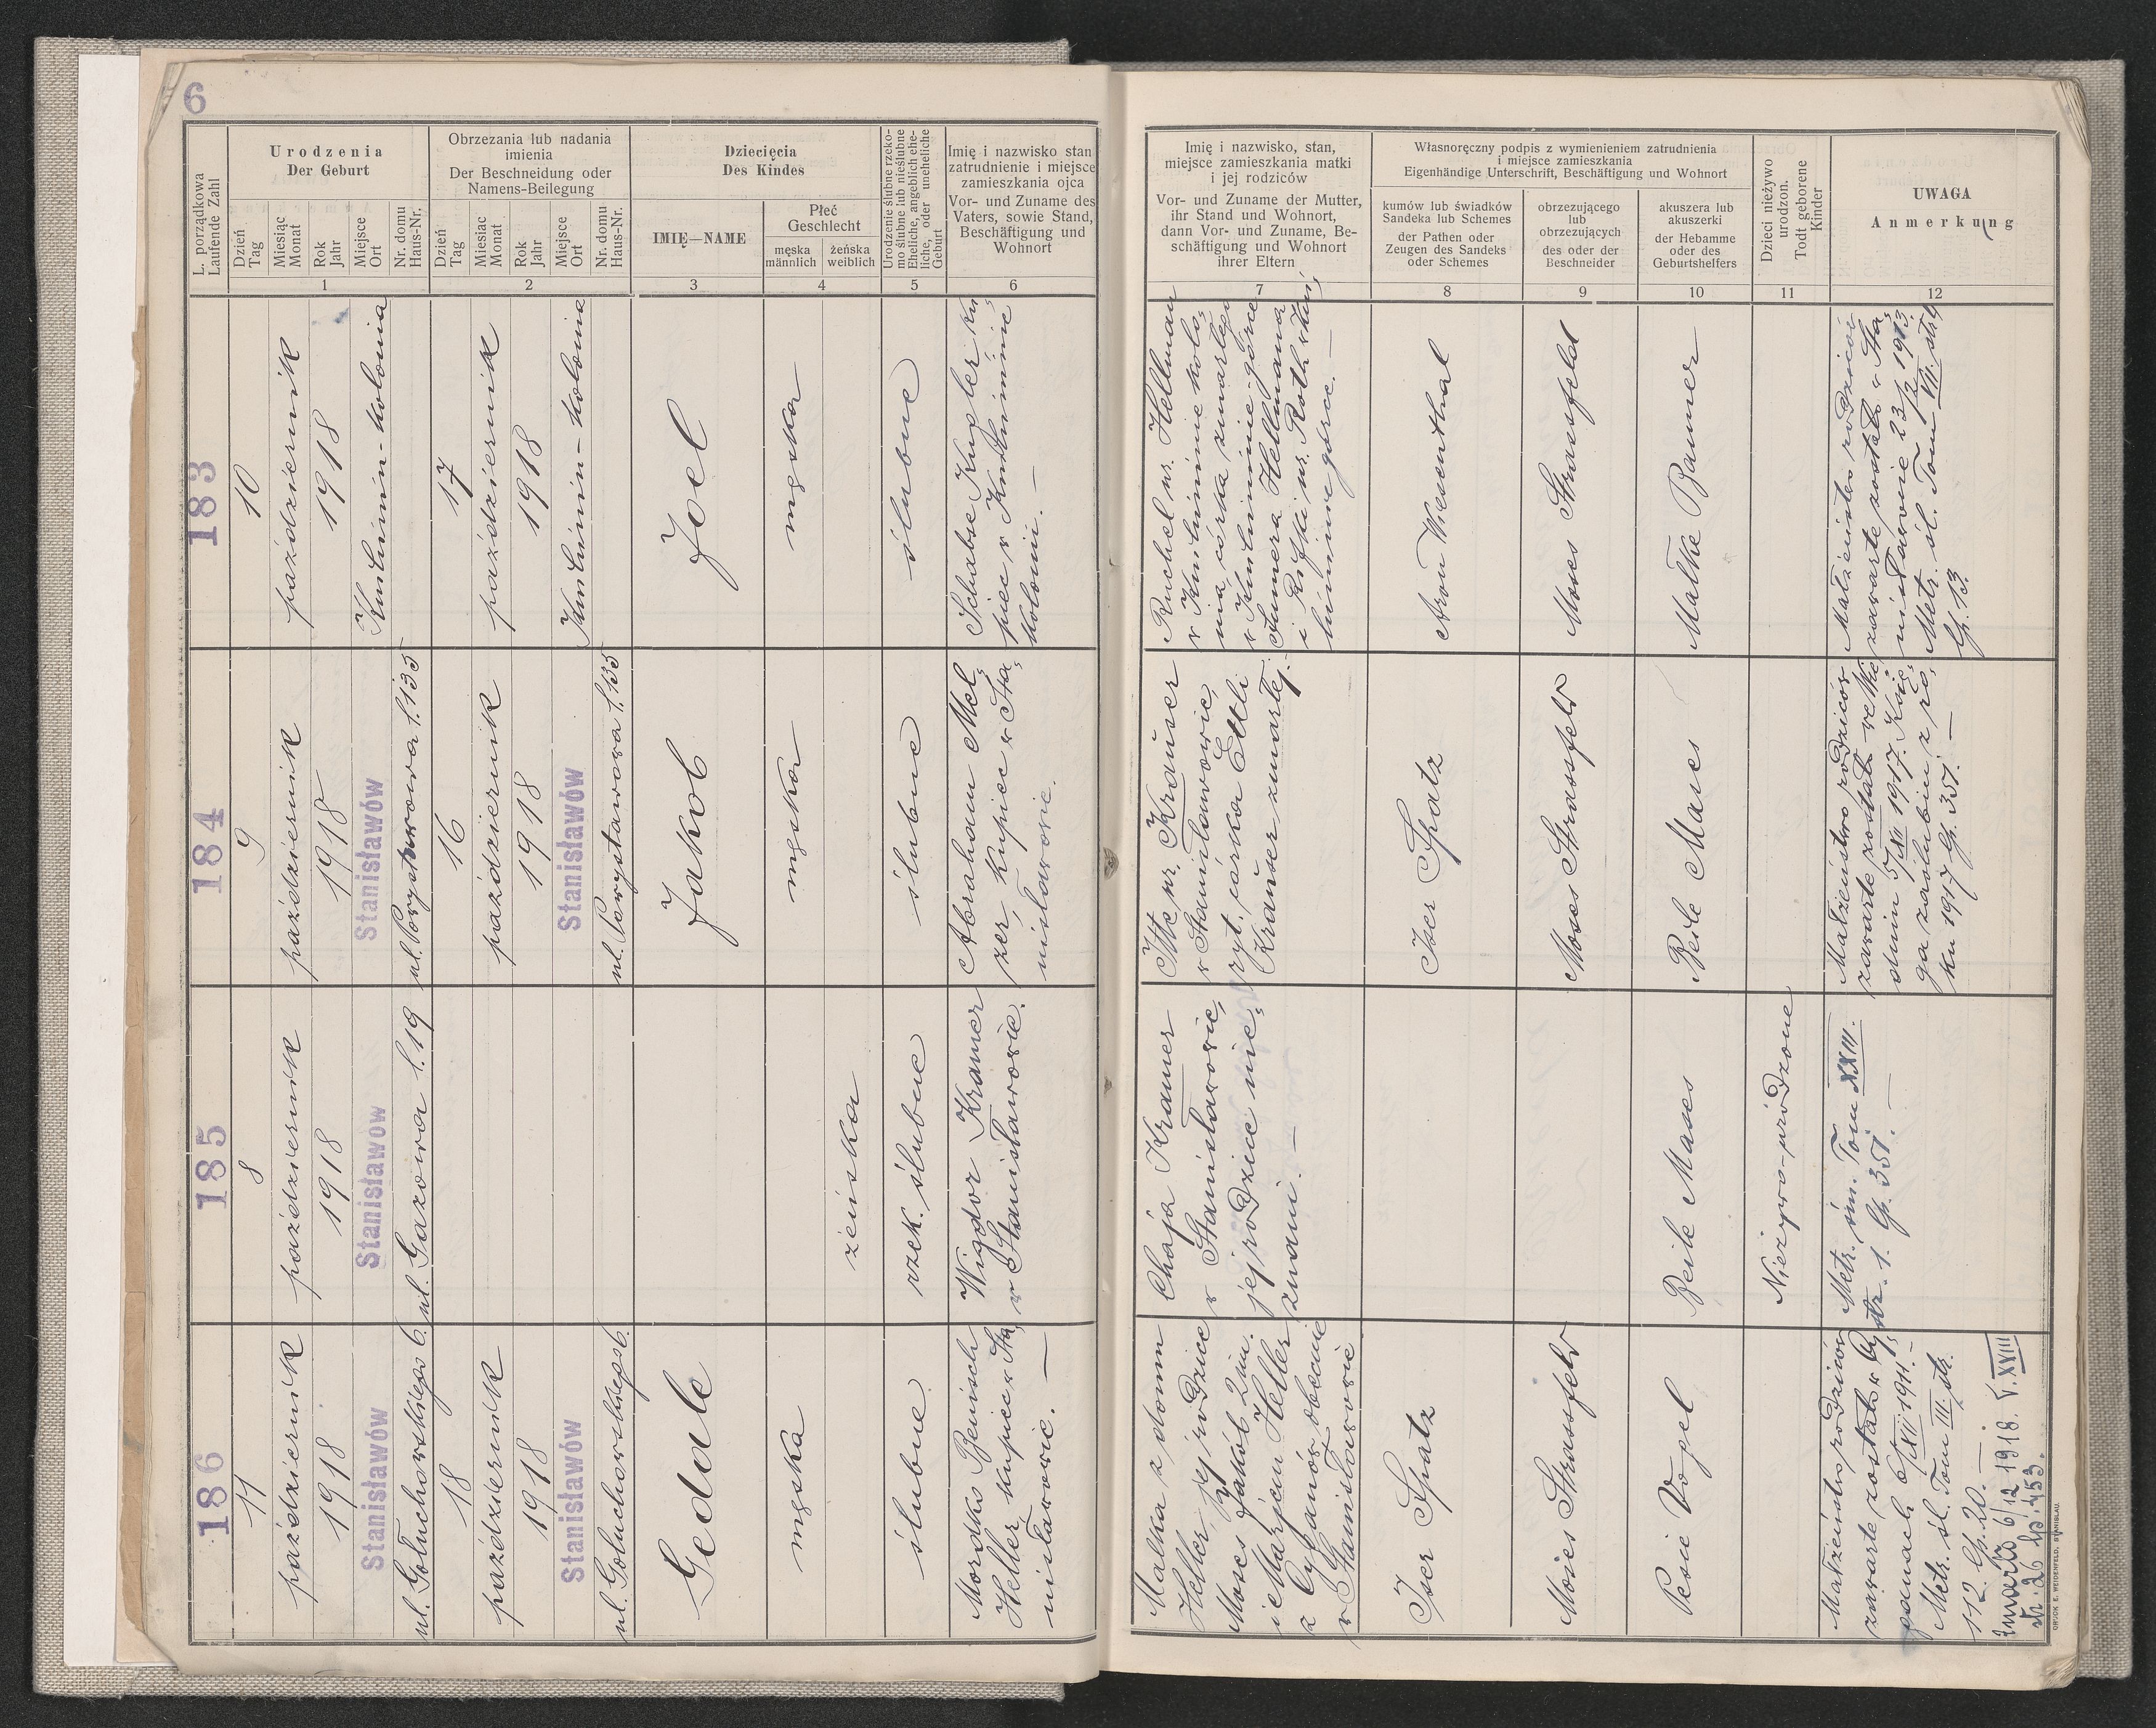 6
L. porządkowa
Laufende Zahl
Urodzenia
Der Geburt
Dzień
Tag
Miesiąc
Monat
Rok
Jahr
Miejsce
Ort
Nr. domu
Haus-Nr.
1
Obrzezania lub nadania
imienia
Der Beschneidung oder
Namens-Beilegung
Dzień
Tag
Miesiąc
Monat
Rok
Jahr
Miejsce
Ort
Nr. domu
Haus-Nr.
2
Dziecięcia
Des Kindes
IMIĘ—NAME
3
Płeć
Geschlecht
męska
männlich
żeńska
weiblich
4
Urodzenie ślubne rzeko-
mo ślubne lub nieślubne
Eheliche, angeblich ehe-
liche, oder uneheliche
Geburt
5
Imię i nazwisko stan
zatrudnienie i miejsce
zamieszkania ojca
Vor- und Zuname des
Vaters, sowie Stand,
Beschäftigung und
Wohnort
6
Imię i nazwisko, stan,
miejsce zamieszkania matki
i jej rodziców
Vor- und Zuname der Mutter,
ihr Stand und Wohnort,
dann Vor- und Zuname, Be-
schäftigung und Wohnort
ihrer Eltern
7
Własnoręczny podpis z wymienieniem zatrudnienia
i miejsce zamieszkania
Eigenhändige Unterschrift, Beschäftigung und Wohnort
kumów lub świadków
Sandeka lub Schemes
der Pathen oder
Zeugen des Sandeks
oder Schemes
8
obrzezującego
lub
obrzezujących
des oder der
Beschneider
9
akuszera lub
akuszerki
der Hebamme
oder des
Geburtshelfers
10
Dzieci nieżywo
urodzon.
Todt geborene
Kinder
11
UWAGA
Anmerkung
12
183
10
październik
1918
Knihinin-Kolonia
17
październik
1918
Knihinin-Kolonia
Joel
męska
ślubne
Schabse Kugler ku
piec w Knihininie
Kolonii. —
Ruchel ur. Hellman
w Knihininie kolo
nia, córka zmarłego
w Knihininie górce
i Rifki ur. Roth w Kni
hininie górce. —
Aron Wiesenthal
Moses Strassfeld
Malke Bauner
Małżeństwo rodziców
zawarte zostało w Sta
nisławowie 23/2 1913.
Metr. śl. Tom VII. str. 9
lp. 13.
184
9
październik
1918
Stanisławów
ul. Sorystawowa l. 135
16
październik
1918
Stanisławów
Jakob
męska
ślubne
Abraham Mel
zer, kupiec w Sta
nisławowie.
Itte ur. Krauser
w Stanisławowie,
ryt. córka Etli
Krauser zmarłej. —
Iser Spatz
Moses Strassfeld
Beile Mases
Małżeństwo rodziców
zawarte zostało
dnia 5/XII 1917. Księ
ga zaślubin z ro
ku 1917 lp. 351. —
185
8
październik
1918
Stanisławów
ul. Gazowa l. 19
żeńska
rzek. ślubne
Wigdor Kramer
w Stanisławowie.
Chaja Kramer
w Stanisławowie,
jej rodzice nie
znani. —
Beile Mases
Nieżywo-urodzone
Metr. śm. Tom XXIII.
str. 1. lp. 351. —
186
11
październik
1918
Stanisławów
ul. Gołuchowskiego 6.
18
październik
1918
Stanisławów
ul. Gołuchowskiego 6.
Gedale
męska
ślubne
Mordko Beinisch
Heller kupiec w Sta
nisławowie. —
Malka z domu
Heller, jej rodzice
Moses Jakób 2 im.
i Marjem Heller
z Cyganów obecnie
w Stanisławowie
Iser Spatz
Moses Strassfeld
Pesie Vogel
Małżeństwo rodziców
zawarte zostało w Cy
ganach 5/XII 1911. —
Metr. śl. Tom III. str.
112 lp. 20. —
Zmarło 6/12 1918. T. XXIII
str. 26 lp. 453.
DRUCK E. WEIDENFELD, STANISLAU.